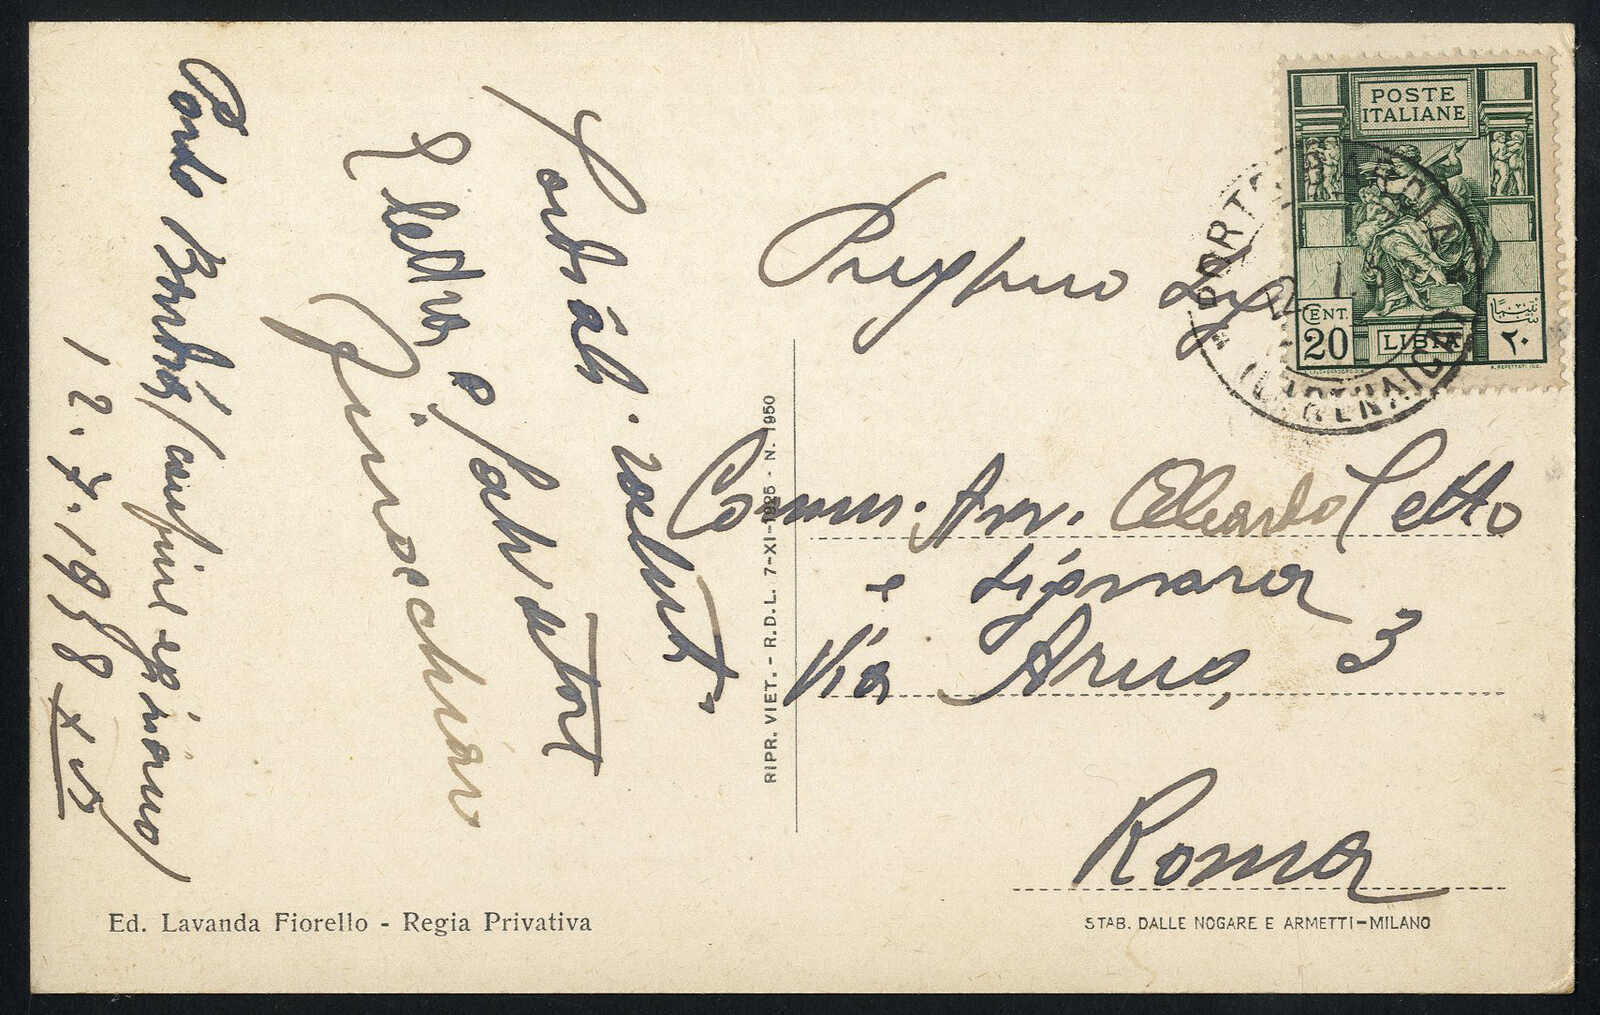 Porto Bardia (confine egiziano)
12.7.1938 XVI
Cordiali saluti
Elettra e Salvatore
POSTE
ITALIANE
CENT.
20
LIBIA
٢٠
PORTO BARDIA
(CIRENAICA)
Comm. Avv. Edoardo Cetto
e Signora
Via Arno, 3
Roma
RIPR. VIET. - R.D.L. 7-XI-1925 - N. 1950
Ed. Lavanda Fiorello - Regia Privativa
STAB. DALLE NOGARE E ARMETTI-MILANO